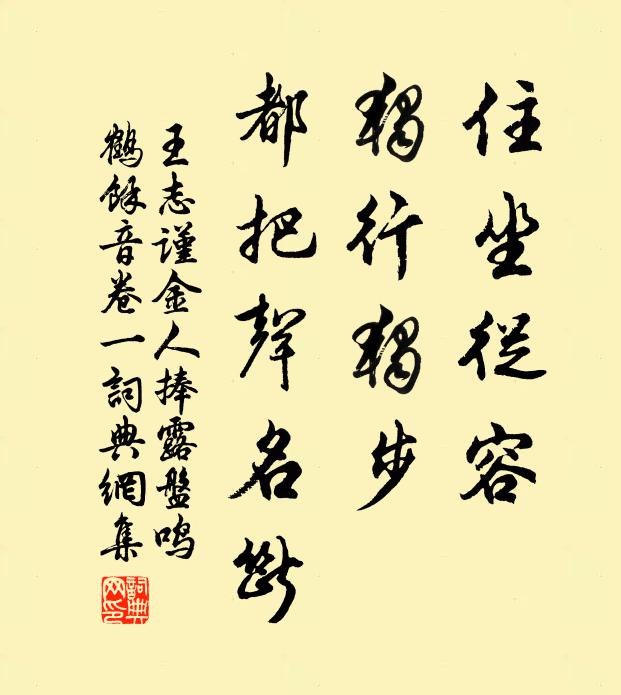 住坐從容
獨行獨步
都把聲名斷
王志謹金人捧露盤鳴
鶴餘音卷一詞典網集
詞典
网印